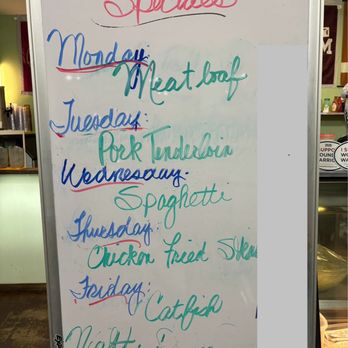 Specials
Monday:
Meatloaf
Tuesday:
Pork Tenderloin
Wednesday:
Spaghetti
Thursday:
Chicken Fried
Friday:
Catfish
M